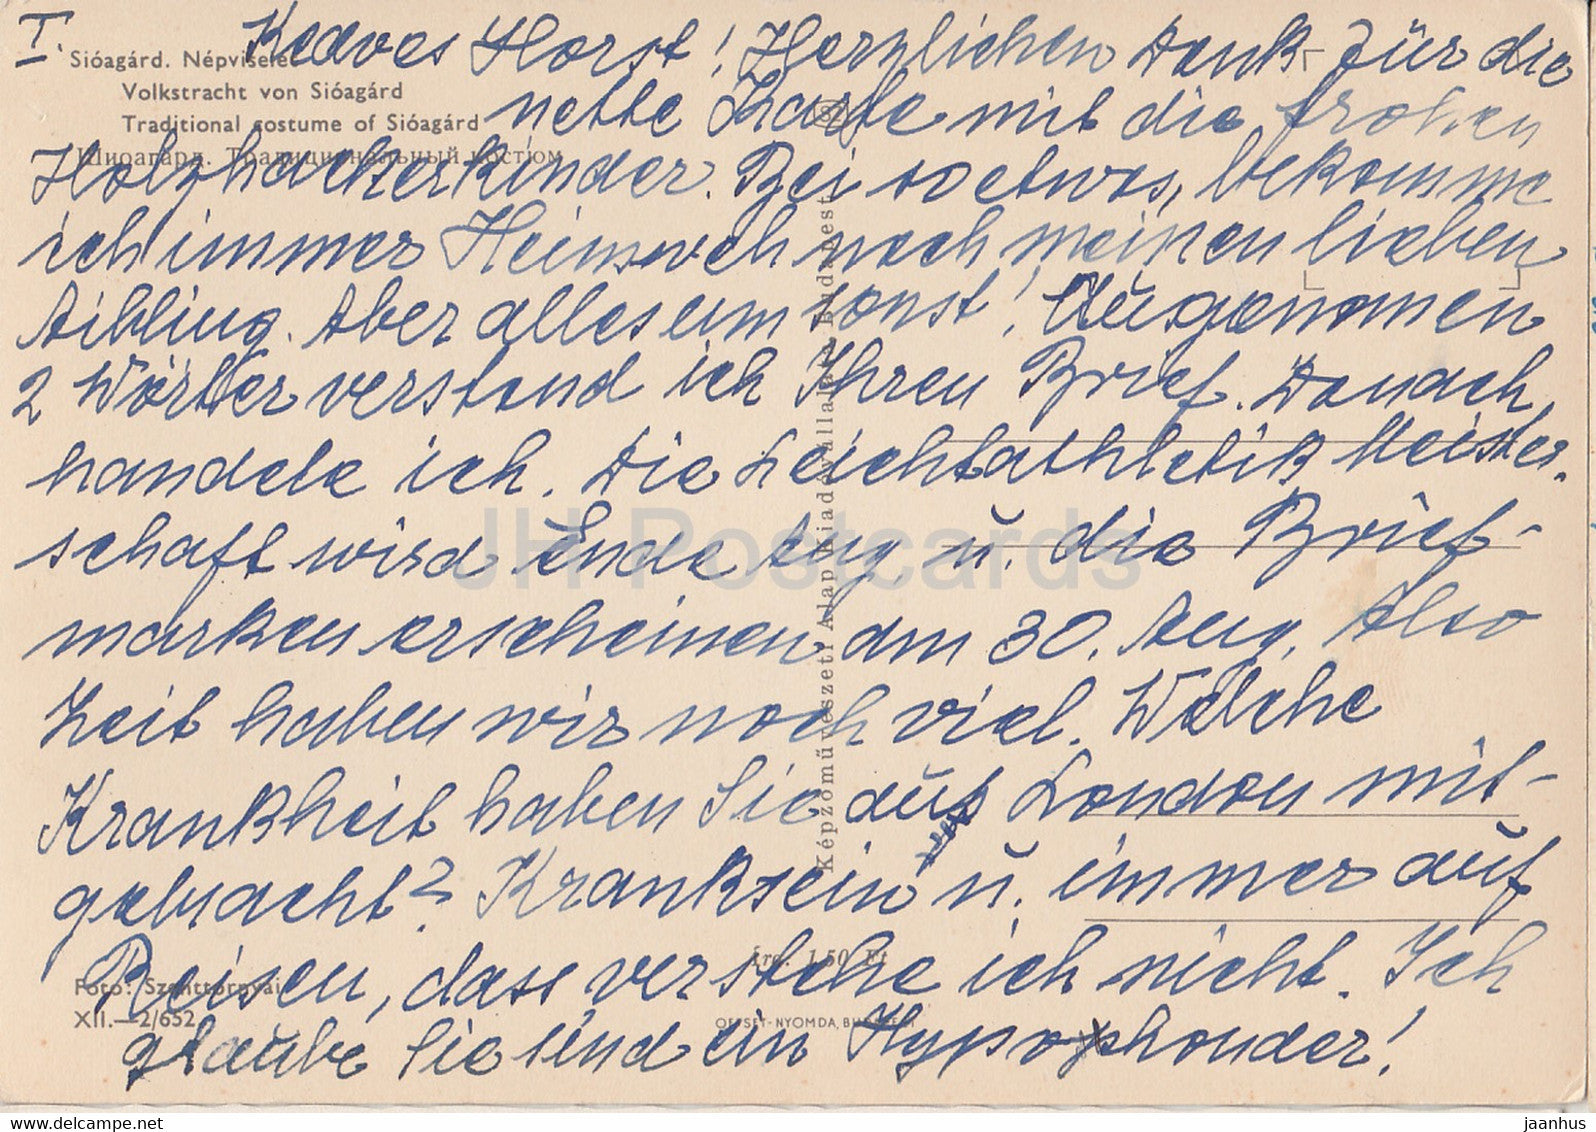 I.
Kedves Horst! Herzlichen Dank für die
Sióagárd. Népviselet
Volkstracht von Sióagárd
Traditional costume of Sióagárd
Шиоагард. Традициональный костюм
nette Karte mit die frohen
Holzhackerkinder. Bei so etwas, bekomme
ich immer Heimweh nach meinen lieben
Aibling. Aber alles umsonst! Ausgenomen
2 Wörter verstand ich Ihren Brief. Danach
handele ich. Die Leichtathletik Meister-
schaft wird Ende Aug. u. die Brief-
marken erscheinen am 30. Aug. Also
Zeit haben wir noch viel. Welche
Krankheit haben Sie aus London mit-
gebracht? Kranksein u. immer auf
Reisen, dass verstehe ich nicht. Ich
glaube Sie sind ein Hypochonder!
Képzőművészeti Alap Kiadóvállalat, Budapest
Ára: 1,50 Ft
Foto: Szenttornyai
XII.—2/652
OFFSET-NYOMDA, BUDAPEST
JH Postcards
www.delcampe.net
jaanhus